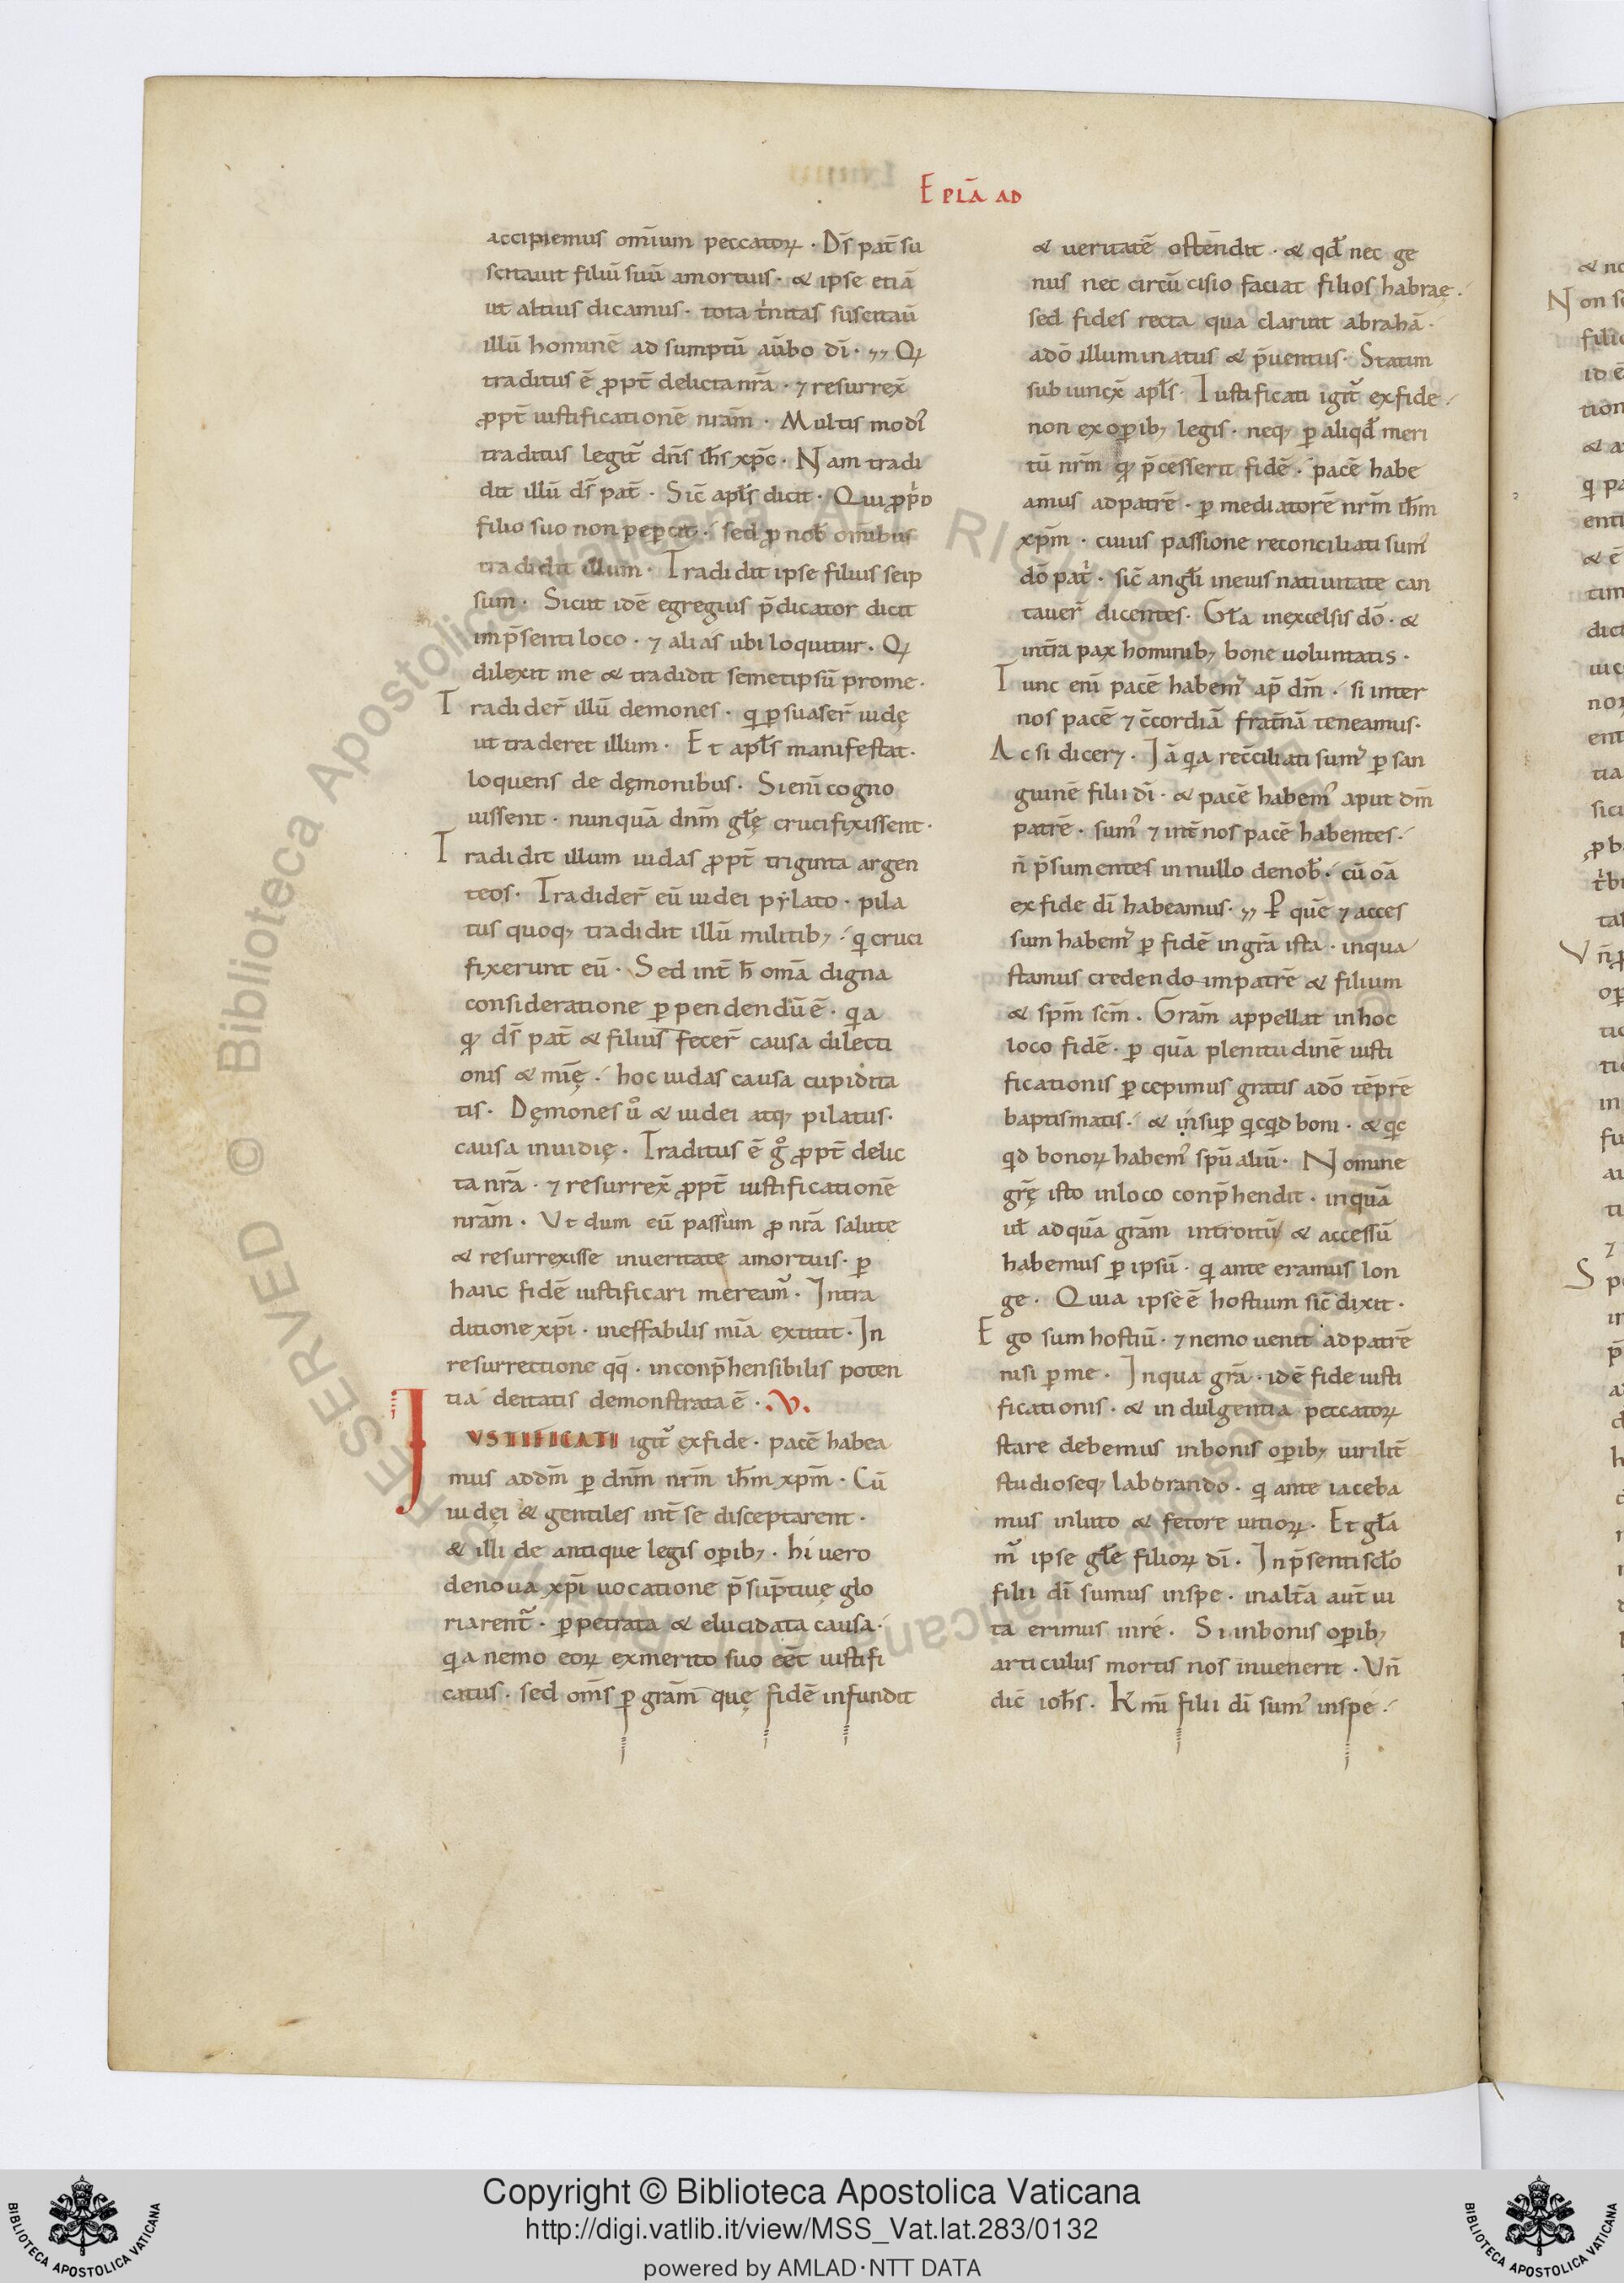 EPLA AD
accipiemus om̄ium peccatoꝝ · Ds̄ pat̄ su
scitauit filiū suū amortuis · & ipse etiā
ut altius dicamus · tota trinitas suscitau̅
illū hominē ad sumptū au̅bo dī · Qꝝ
traditus ē ꝓpt̄ delicta nr̄a · ⁊ resurrex̄
ꝓpt̄ iustificationē nrām · Multis mod̓
traditus legit̄ dn̄s ih̄s xp̄c · Nam tradi
dit illū ds̄ pat̄ · Sic̄ apl̄s dicit · Qui ꝓprio
filio suo non peꝑcit · sed ꝓ nob̄ om̄ibus
tradidit illum · Tradidit ipse filius seip
sum · Sicut idē egregius p̄dicator dicit
inp̄senti loco · ⁊ alias ubi loquitur · Qꝝ
dilexit me & tradidit semetipsū prome ·
Tradider̄ illū demones · q ꝑsuaser̄ iudę
ut traderet illum · Et apl̄s manifestat ·
loquens de dęmonibus · Si enī cogno
uissent · nunquā dnm̄ gl̄ę crucifixissent ·
Tradidit illum iudas ꝓpt̄ triginta argen
teos · Tradider̄ eū iudei pẏlato · pila
tus quoq; tradidit illū militib; · q cruci
fixerunt eū · Sed int̄ h̄ omā digna
consideratione ꝑpendendū ē · qa
q ds̄ pat̄ & filius fecer̄ causa dilecti
onis & mię̄ · hoc iudas causa cupidita
tis · Dęmones ů & iudei atq; pilatus ·
causa inuidię · Traditus ē g̊ ꝓpt̄ delic
ta nr̄a · ⁊ resurrex̄ ꝓpt̄ iustificationē
nrām · Ut dum eū passum ꝓ nr̄a salute
& resurrexisse inueritate amortuis · ꝑ
hanc fidē iustificari meream̄ · Intra
ditione xp̄i · ineffabilis mīa extitit · In
resurrectione qq̄ · inconp̄hensibilis poten
tia deitatis demonstrata ē · .V.
IUSTIFICATI igit̄ exfide · pacē habea
mus addm̄ ꝑ dnm̄ nrm̄ ih̄m xp̄m · Cū
iudęi & gentiles int̄ se disceptarent ·
& illi de antique legis oꝑib; · hi uero
denoua xp̄i uocatione p̄sūptiuę glo
riarent̄ · ꝑpetrata & elucidata causa ·
qa nemo eoꝝ exmerito suo eēt iustifi
catus · sed om̄s ꝑ grām quę fidē infundit
& ueritatē ostēndit · & qd̄ nec ge
nus nec circū cisio faciat filios habraę ·
sed fides recta qua claruit abrahā ·
adō illuminatus & p̄uentus · Statim
subiunc̄x apl̄s · Iustificati igit̄ exfide ·
non exoꝑib; legis · neq; ꝑ aliqd̄ meri
tū nrm̄ q p̄cesserit fidē · pacē habe
amus adpatrē · ꝑ mediatorē nrm̄ ih̄m
xp̄m · cuius passione reconciliati sum̓
dō patri · sic̄ angl̄i ineius natiuitate can
tauer̄ dicentes · Gl̄a inexcelsis dō · &
int̄ra pax hominib; bone uoluntatis ·
Tunc enī pacē habem̓ ap̄ dm̄ · si inter
nos pacē ⁊ c̄cordiā frat̄nā teneamus ·
Ac si dicer; · Iā qa rec̄ciliati sum̓ ꝑ san
guinē filii dī · & pacē habem̓ aput dm̄
patrē · sum̓ ⁊ int̄ nos pacē habentes ·
n̄ p̄sumentes in nullo denob̄ · cū oā
exfide dī habeamus · P quē ⁊ acces
sum habem̓ ꝑ fidē ingr̄a ista · inqua
stamus credendo inpatrē & filium
& spm̄ scm̄ · Grām appellat inhoc
loco fidē · ꝑ quā plenitudinē iusti
ficationis ꝑcepimus gratis adō tēp̄rē
baptismatis · & insuꝑ qcqd boni · & qc
qd bonoꝝ habem̓ spū aliū · Nomine
gr̄ę isto inloco conp̄hendit · inquā
ul̄ adquā grām introitū & accessū
habemus ꝑ ipsū · q ante eramus lon
ge · Quia ipsē ē hostium sic̄ dixit ·
Ego sum hostiū · ⁊ nemo uenit adpatrē
nisi ꝑ me · Inqua gr̄a · idē fide iusti
ficationis · & indulgentia peccatoꝝ
stare debemus inbonis oꝑib; uirilit̄
studioseq; laborando · q ante iaceba
mus inluto & fetore uitioꝝ · Et gl̄a
m̄ inspe gl̄e filioꝝ dī · Inp̄senti scl̄o
filii dī sumus inspe · inalt̄a aut̄ ui
ta erimus inré · Si inbonis oꝑib;
articulus mortis nos inuenerit · Vn̄
dic̄ ioh̄s · Kmī filii dī sum̓ inspe ·